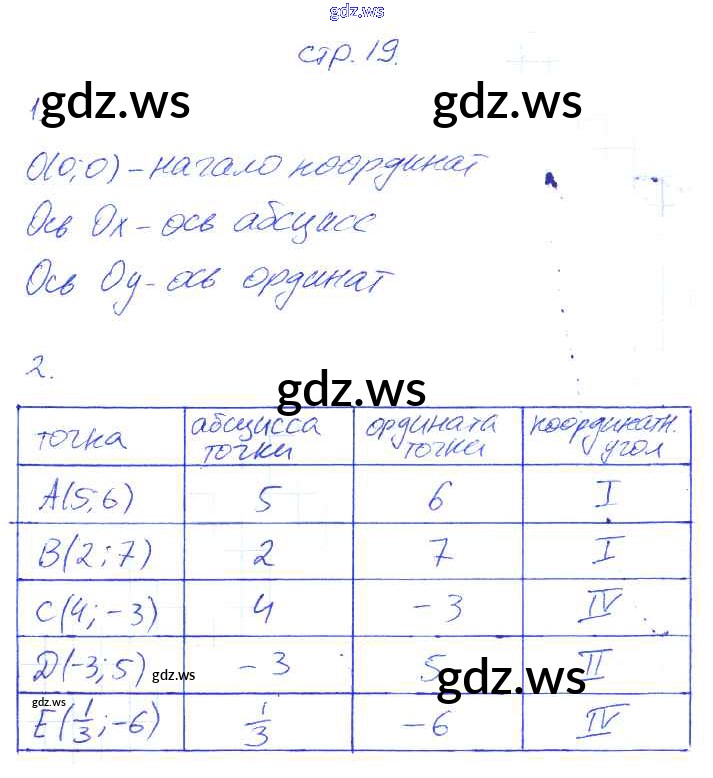 gdz.ws
стр. 19.
1
gdz.ws gdz.ws
O(0;0) – начало координат
Ось Ox – ось абсцисс
Ось Oy – ось ординат
2.
gdz.ws
точка абсцисса точки ордината точки координатн. угол
A(5;6) 5 6 I
B(2;7) 2 7 I
C(4;-3) 4 -3 IV
D(-3;5) -3 5 II
gdz.ws gdz.ws
gdz.ws
E(1/3;-6) 1/3 -6 IV